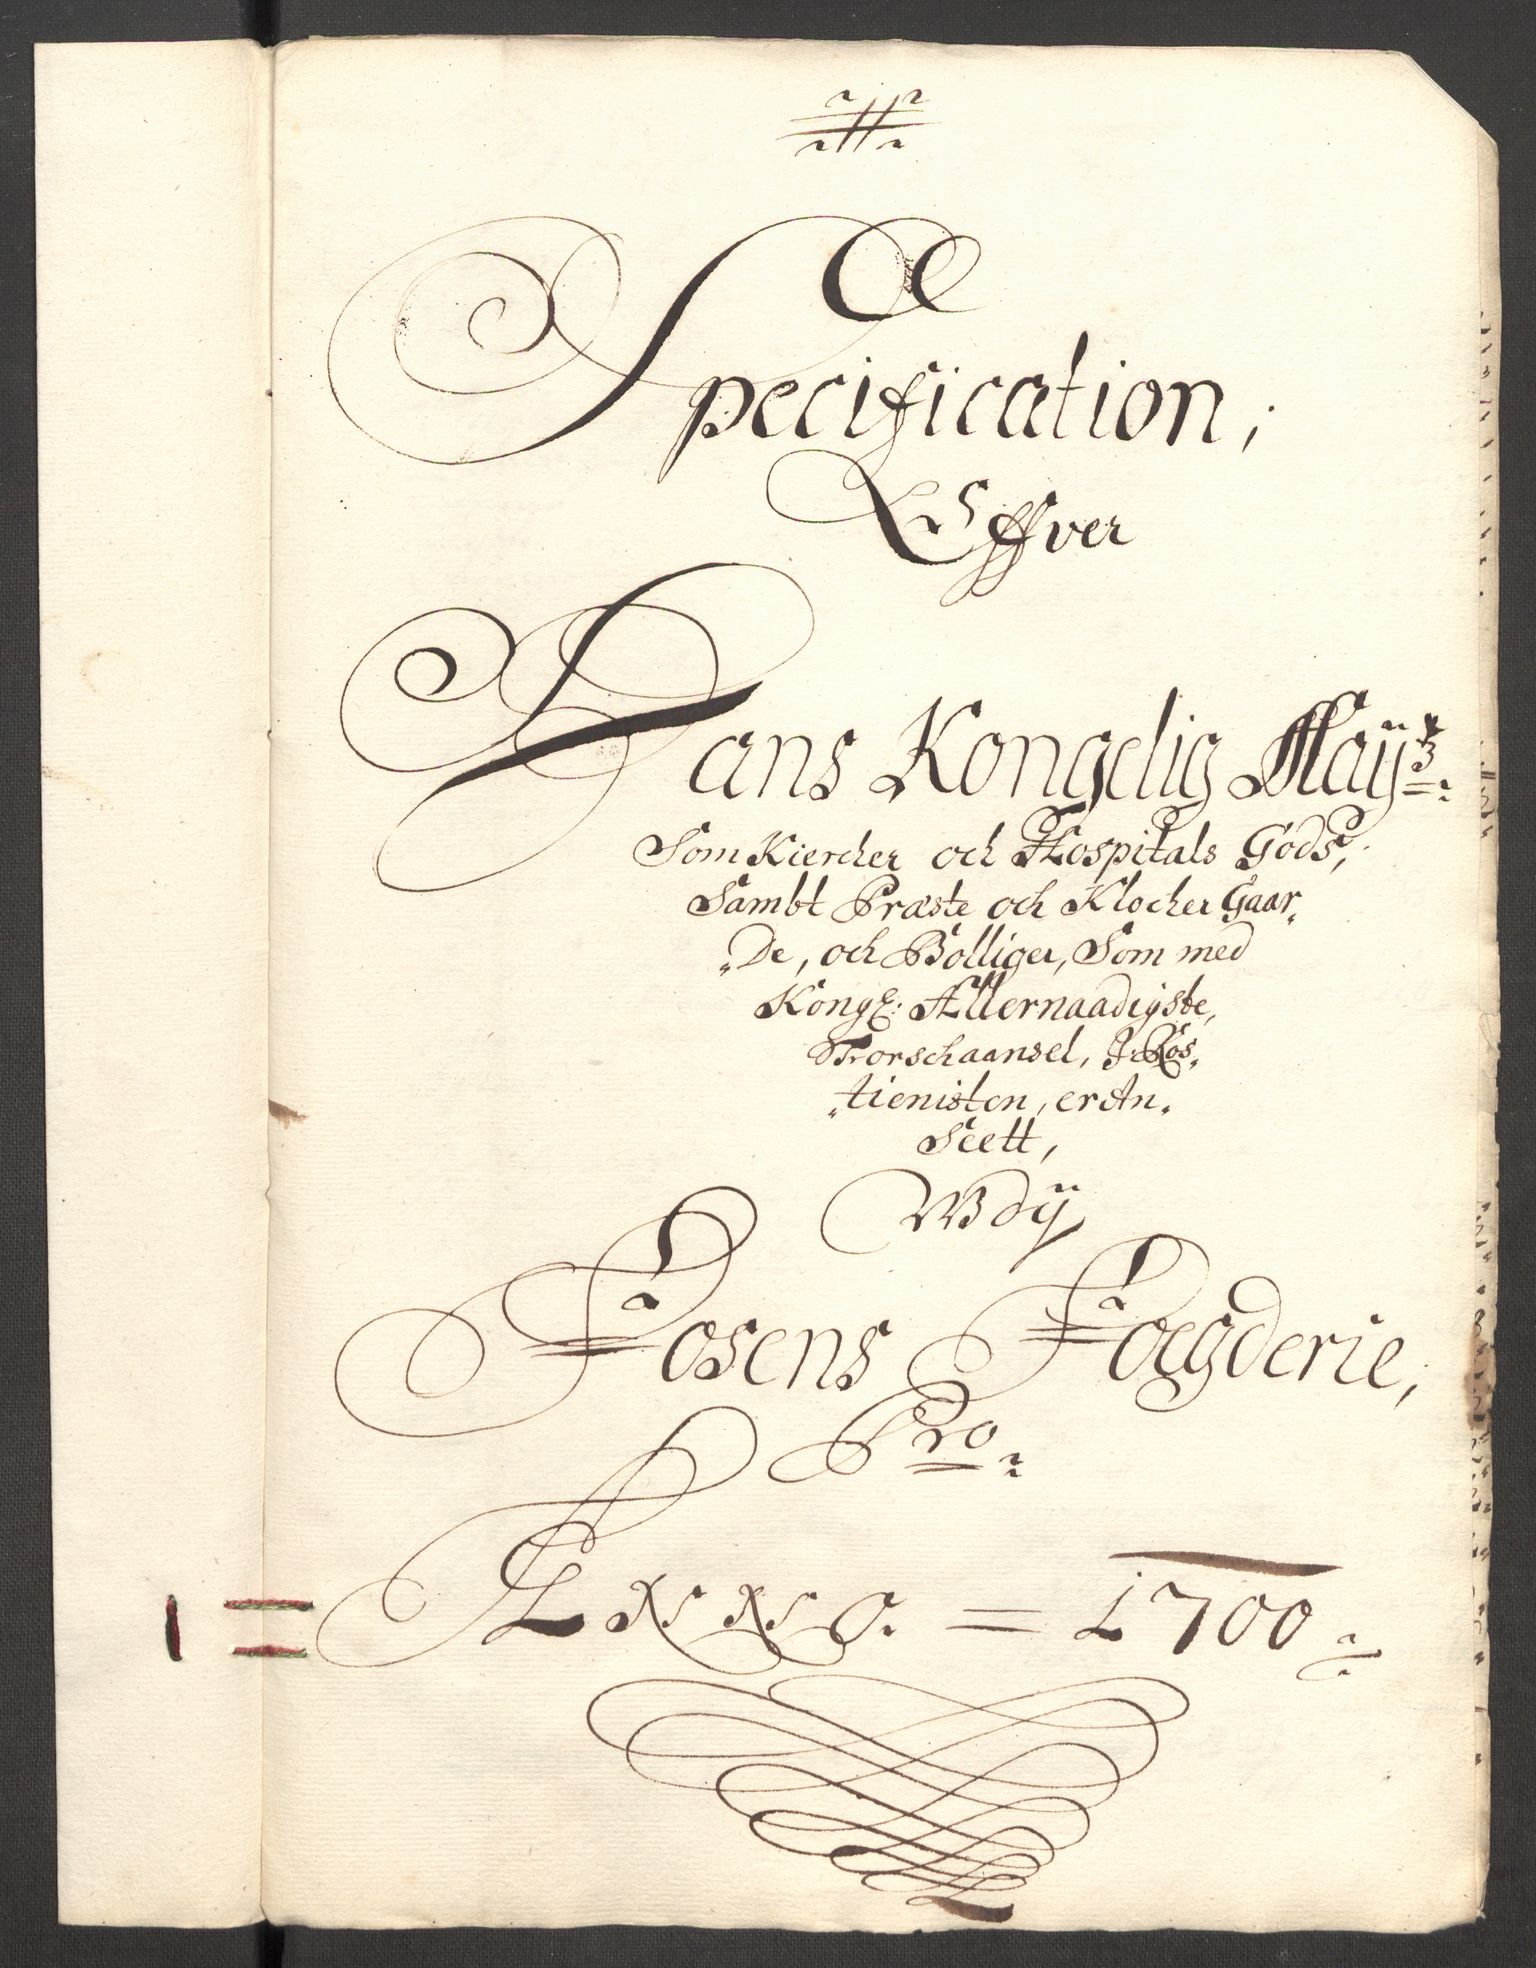 Specification,
Offver
Hans Kongelig Maÿtz:
Som Kiercher och Hospitals Gods,
Sambt Præste och Klocher Gaar„
„De, och Bolliger, Som med
Kongl: Allernaadigste,
Forschaansel, J Ros„
„tienisten, er An„
Seett,
Wdÿ
Fosens Foegderie,
Pro
= 1700